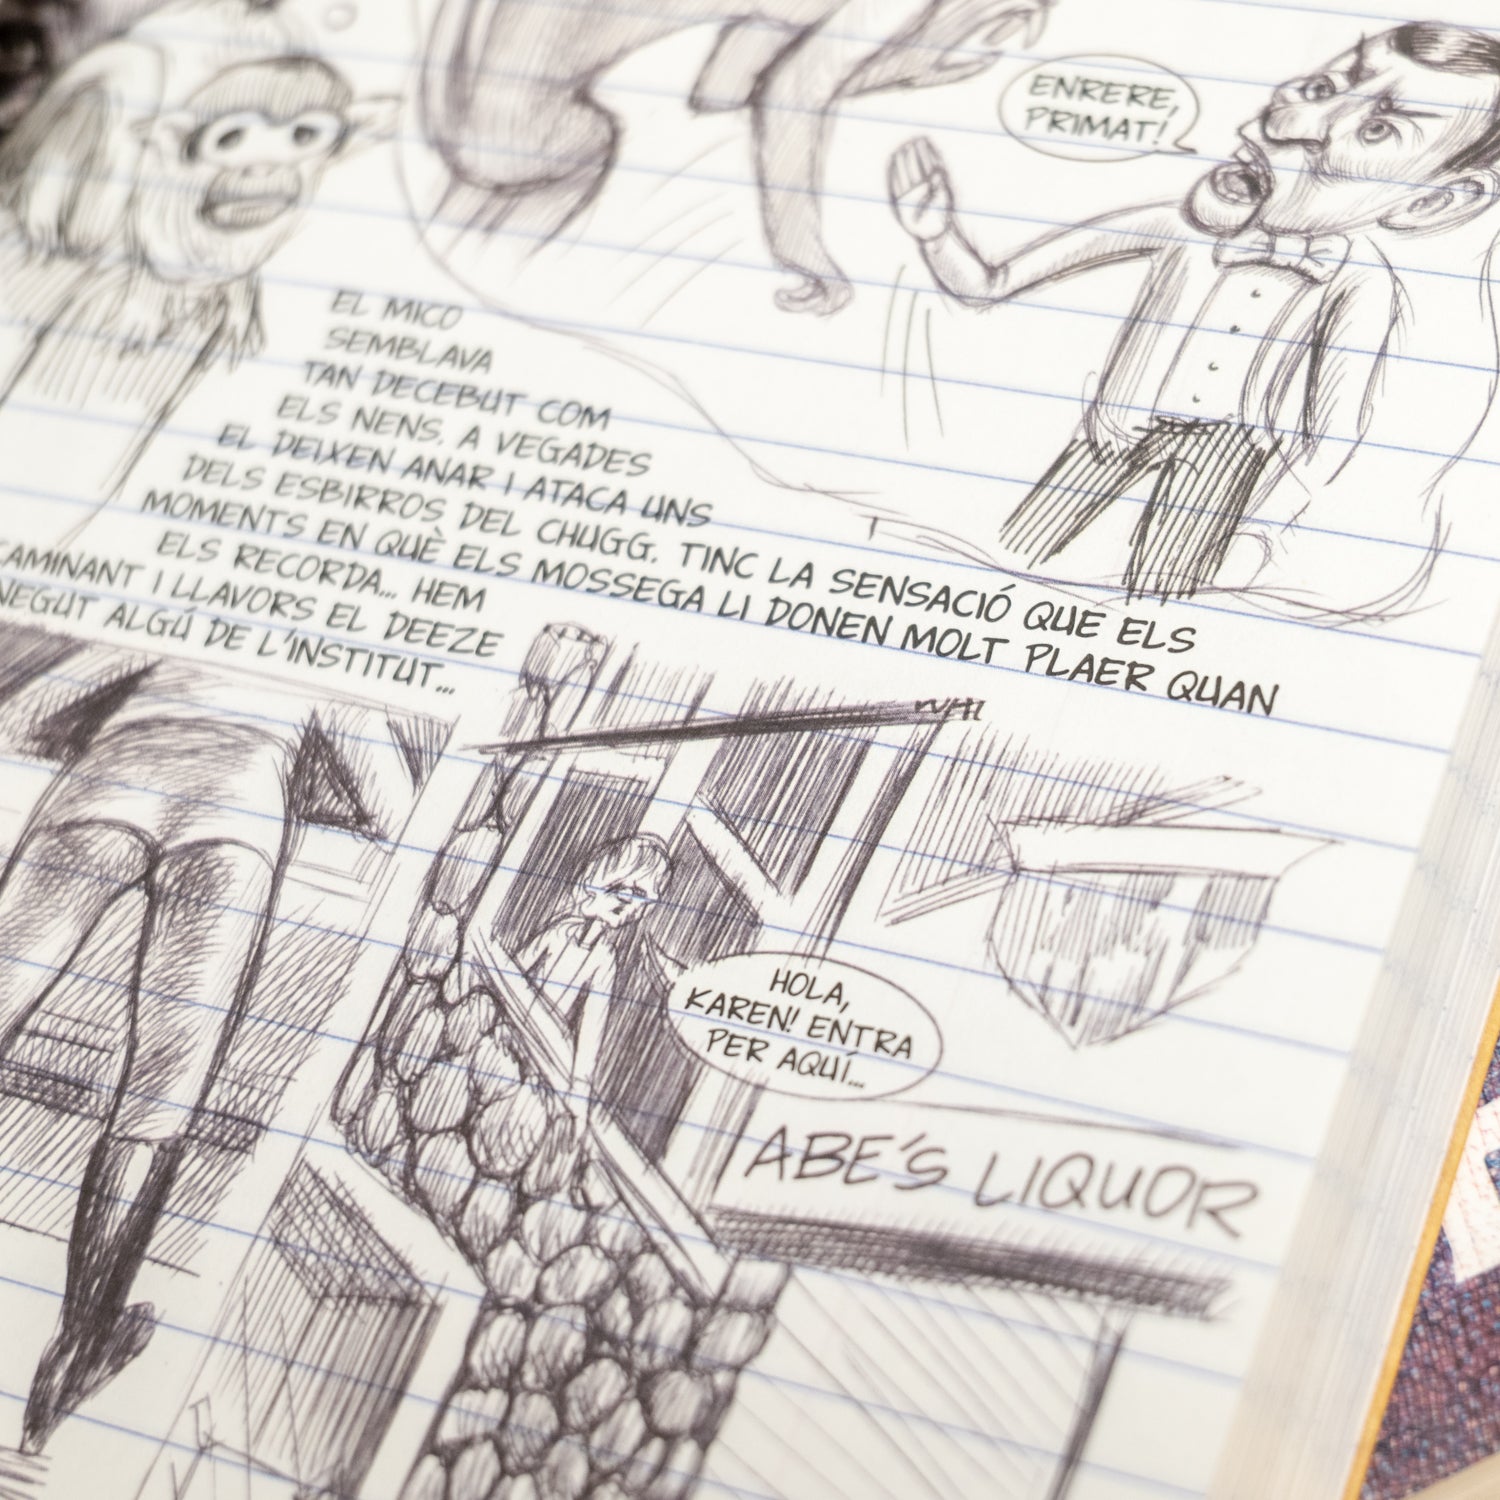 ENRERE,
PRIMAT!
EL MICO
SEMBLAVA
TAN DECEBUT COM
ELS NENS. A VEGADES
EL DEIXEN ANAR I ATACA UNS
DELS ESBIRROS DEL CHUGG. TINC LA SENSACIÓ QUE ELS
MOMENTS EN QUÈ ELS MOSSEGA LI DONEN MOLT PLAER QUAN
ELS RECORDA... HEM
CAMINANT I LLAVORS EL DEEZE
NEGUT ALGÚ DE L'INSTITUT...
HOLA,
KAREN! ENTRA
PER AQUÍ...
ABE'S LIQUOR